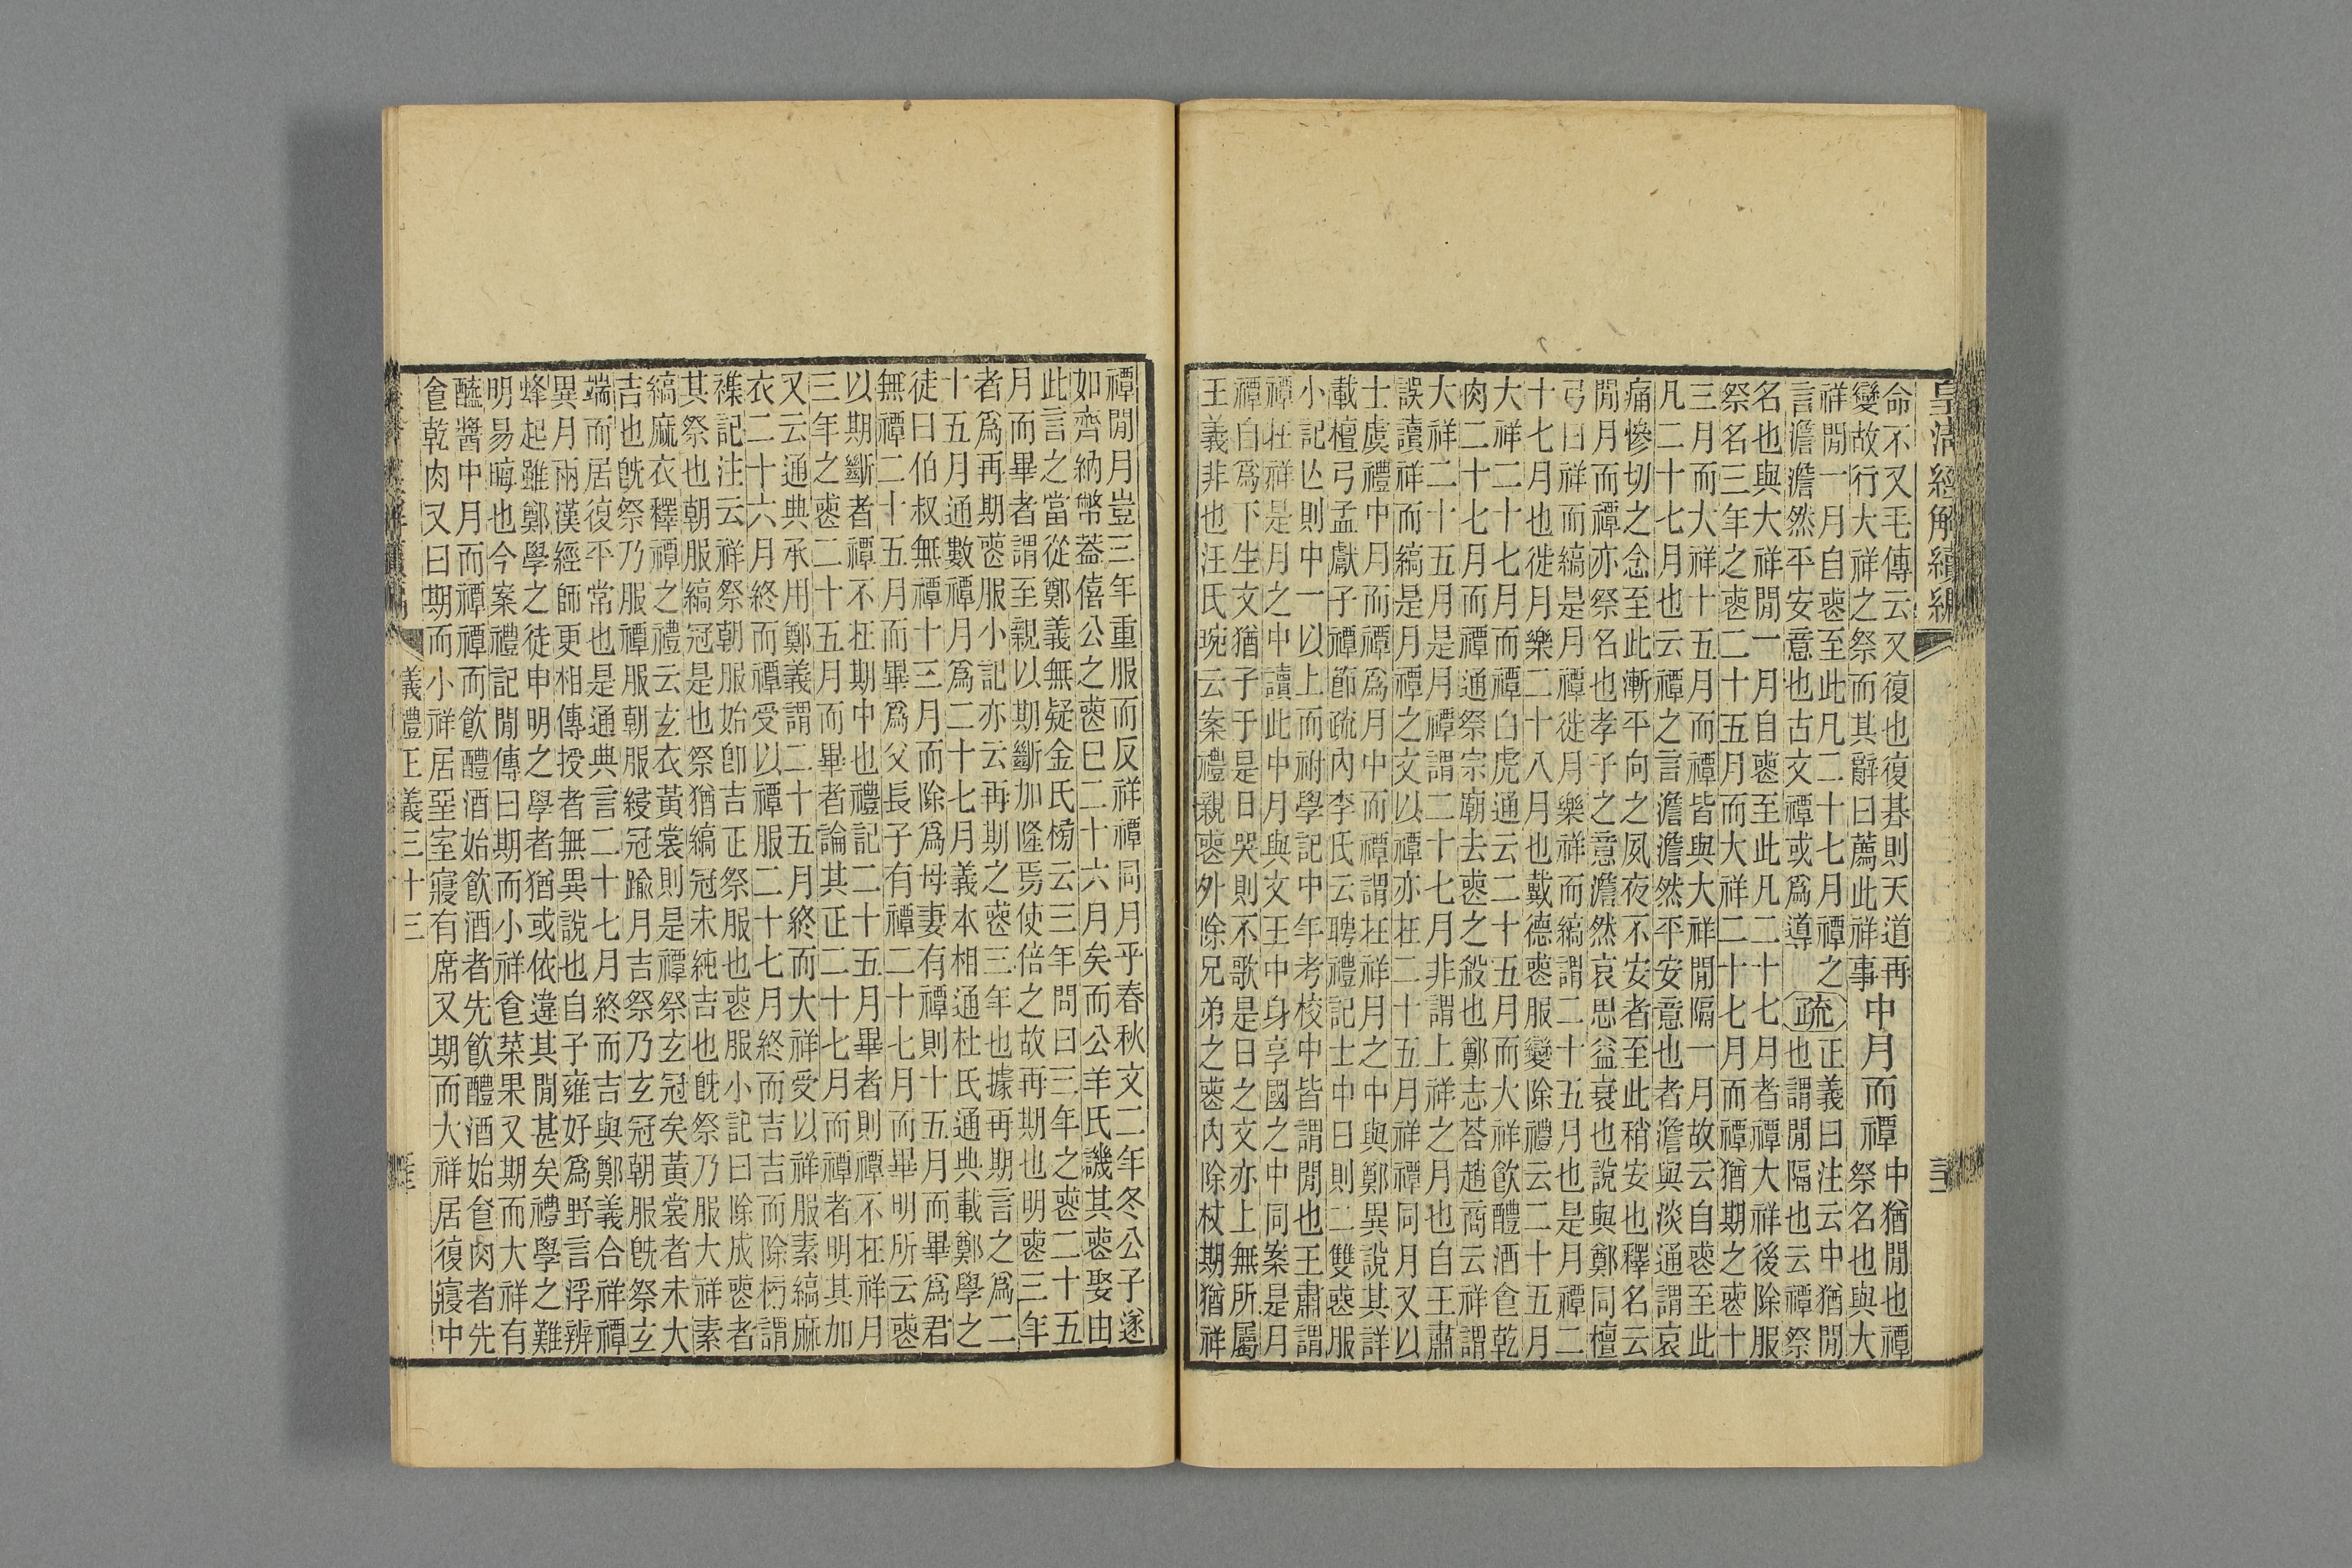 皇清經解續編
命不又毛傳云又復也復朞則天道再
變故行大祥之祭而其辭曰薦此祥事
中月而禫
中猶閒也禫
祭名也與大
祥閒一月自喪至此凡二十七月禫之
言澹澹然平安意也古文禫或爲導
疏
正義曰注云中猶閒
也謂閒隔也云禫祭
名也與大祥閒一月自喪至此凡二十七月者禫大祥後除服
祭名三年之喪二十五月而大祥二十七月而禫猶期之喪十
三月而大祥十五月而禫皆與大祥閒隔一月故云自喪至此
凡二十七月也云禫之言澹澹然平安意也者澹與淡通謂哀
痛慘切之念至此漸平向之夙夜不安者至此稍安也釋名云
閒月而禫亦祭名也孝子之意澹然哀思益衰也說與鄭同檀
弓曰祥而縞是月禫徙月樂祥而縞謂二十五月也是月禫二
十七月也徙月樂二十八月也戴德喪服變除禮云二十五月
大祥二十七月而禫白虎通云二十五月而大祥飲醴酒食乾
肉二十七月而禫通祭宗廟去喪之殺也鄭志荅趙商云祥謂
大祥二十五月是月禫謂二十七月非謂上祥之月也自王肅
誤讀祥而縞是月禫之文以禫亦在二十五月祥禫同月又以
士虞禮中月而禫爲月中而禫謂在祥月之中與鄭異說其詳
載檀弓孟獻子禫節疏內李氏云聘禮記士中日則二雙喪服
小記亡則中一以上而祔學記中年考校中皆謂閒也王肅謂
禫在祥是月之中讀此中月與文王中身享國之中同案是月
禫自爲下生文猶子于是日哭則不歌是日之文亦上無所屬
王義非也汪氏琬云案禮親喪外除兄弟之喪內除杖期猶祥
禫閒月豈三年重服而反祥禫同月乎春秋文二年冬公子遂
如齊納幣葢僖公之喪巳二十六月矣而公羊氏譏其喪娶由
此言之當從鄭義無疑金氏榜云三年問曰三年之喪二十五
月而畢者謂至親以期斷加隆焉使倍之故再期也明喪三年
者爲再期喪服小記亦云再期之喪三年也據再期言之爲二
十五月通數禫月爲二十七月義本相通杜氏通典載鄭學之
徒曰伯叔無禫十三月而除爲母妻有禫則十五月而畢爲君
無禫二十五月而畢爲父長子有禫二十七月而畢明所云喪
以期斷者禫不在期中也禮記二十五月畢者則禫不在祥月
三年之喪二十五月而畢者論其正二十七月而禫者明其加
又云通典承用鄭義謂二十五月終而大祥受以祥服素縞麻
衣二十六月終而禫受以禫服二十七月終而吉吉而除榜謂
襍記注云祥祭朝服始卽吉正祭服也喪服小記曰除成喪者
其祭也朝服縞冠是也祭猶縞冠未純吉也旣祭乃服大祥素
縞麻衣釋禫之禮云玄衣黃裳則是禫祭玄冠矣黃裳者未大
吉也旣祭乃服禫服朝服綅冠踰月吉祭乃玄冠朝服旣祭玄
端而居復平常也是通典言二十七月終而吉與鄭義合祥禫
異月兩漢經師更相傳授者無異說也自子雍好爲野言浮辨
蜂起雖鄭學之徒申明之學者猶或依違其閒甚矣禮學之難
明易晦也今案禮記閒傳曰期而小祥食菜果又期而大祥有
醯醬中月而禫禫而飲醴酒始飲酒者先飲醴酒始食肉者先
食乾肉又曰期而小祥居堊室寢有席又期而大祥居復寢中
義禮正義三十三